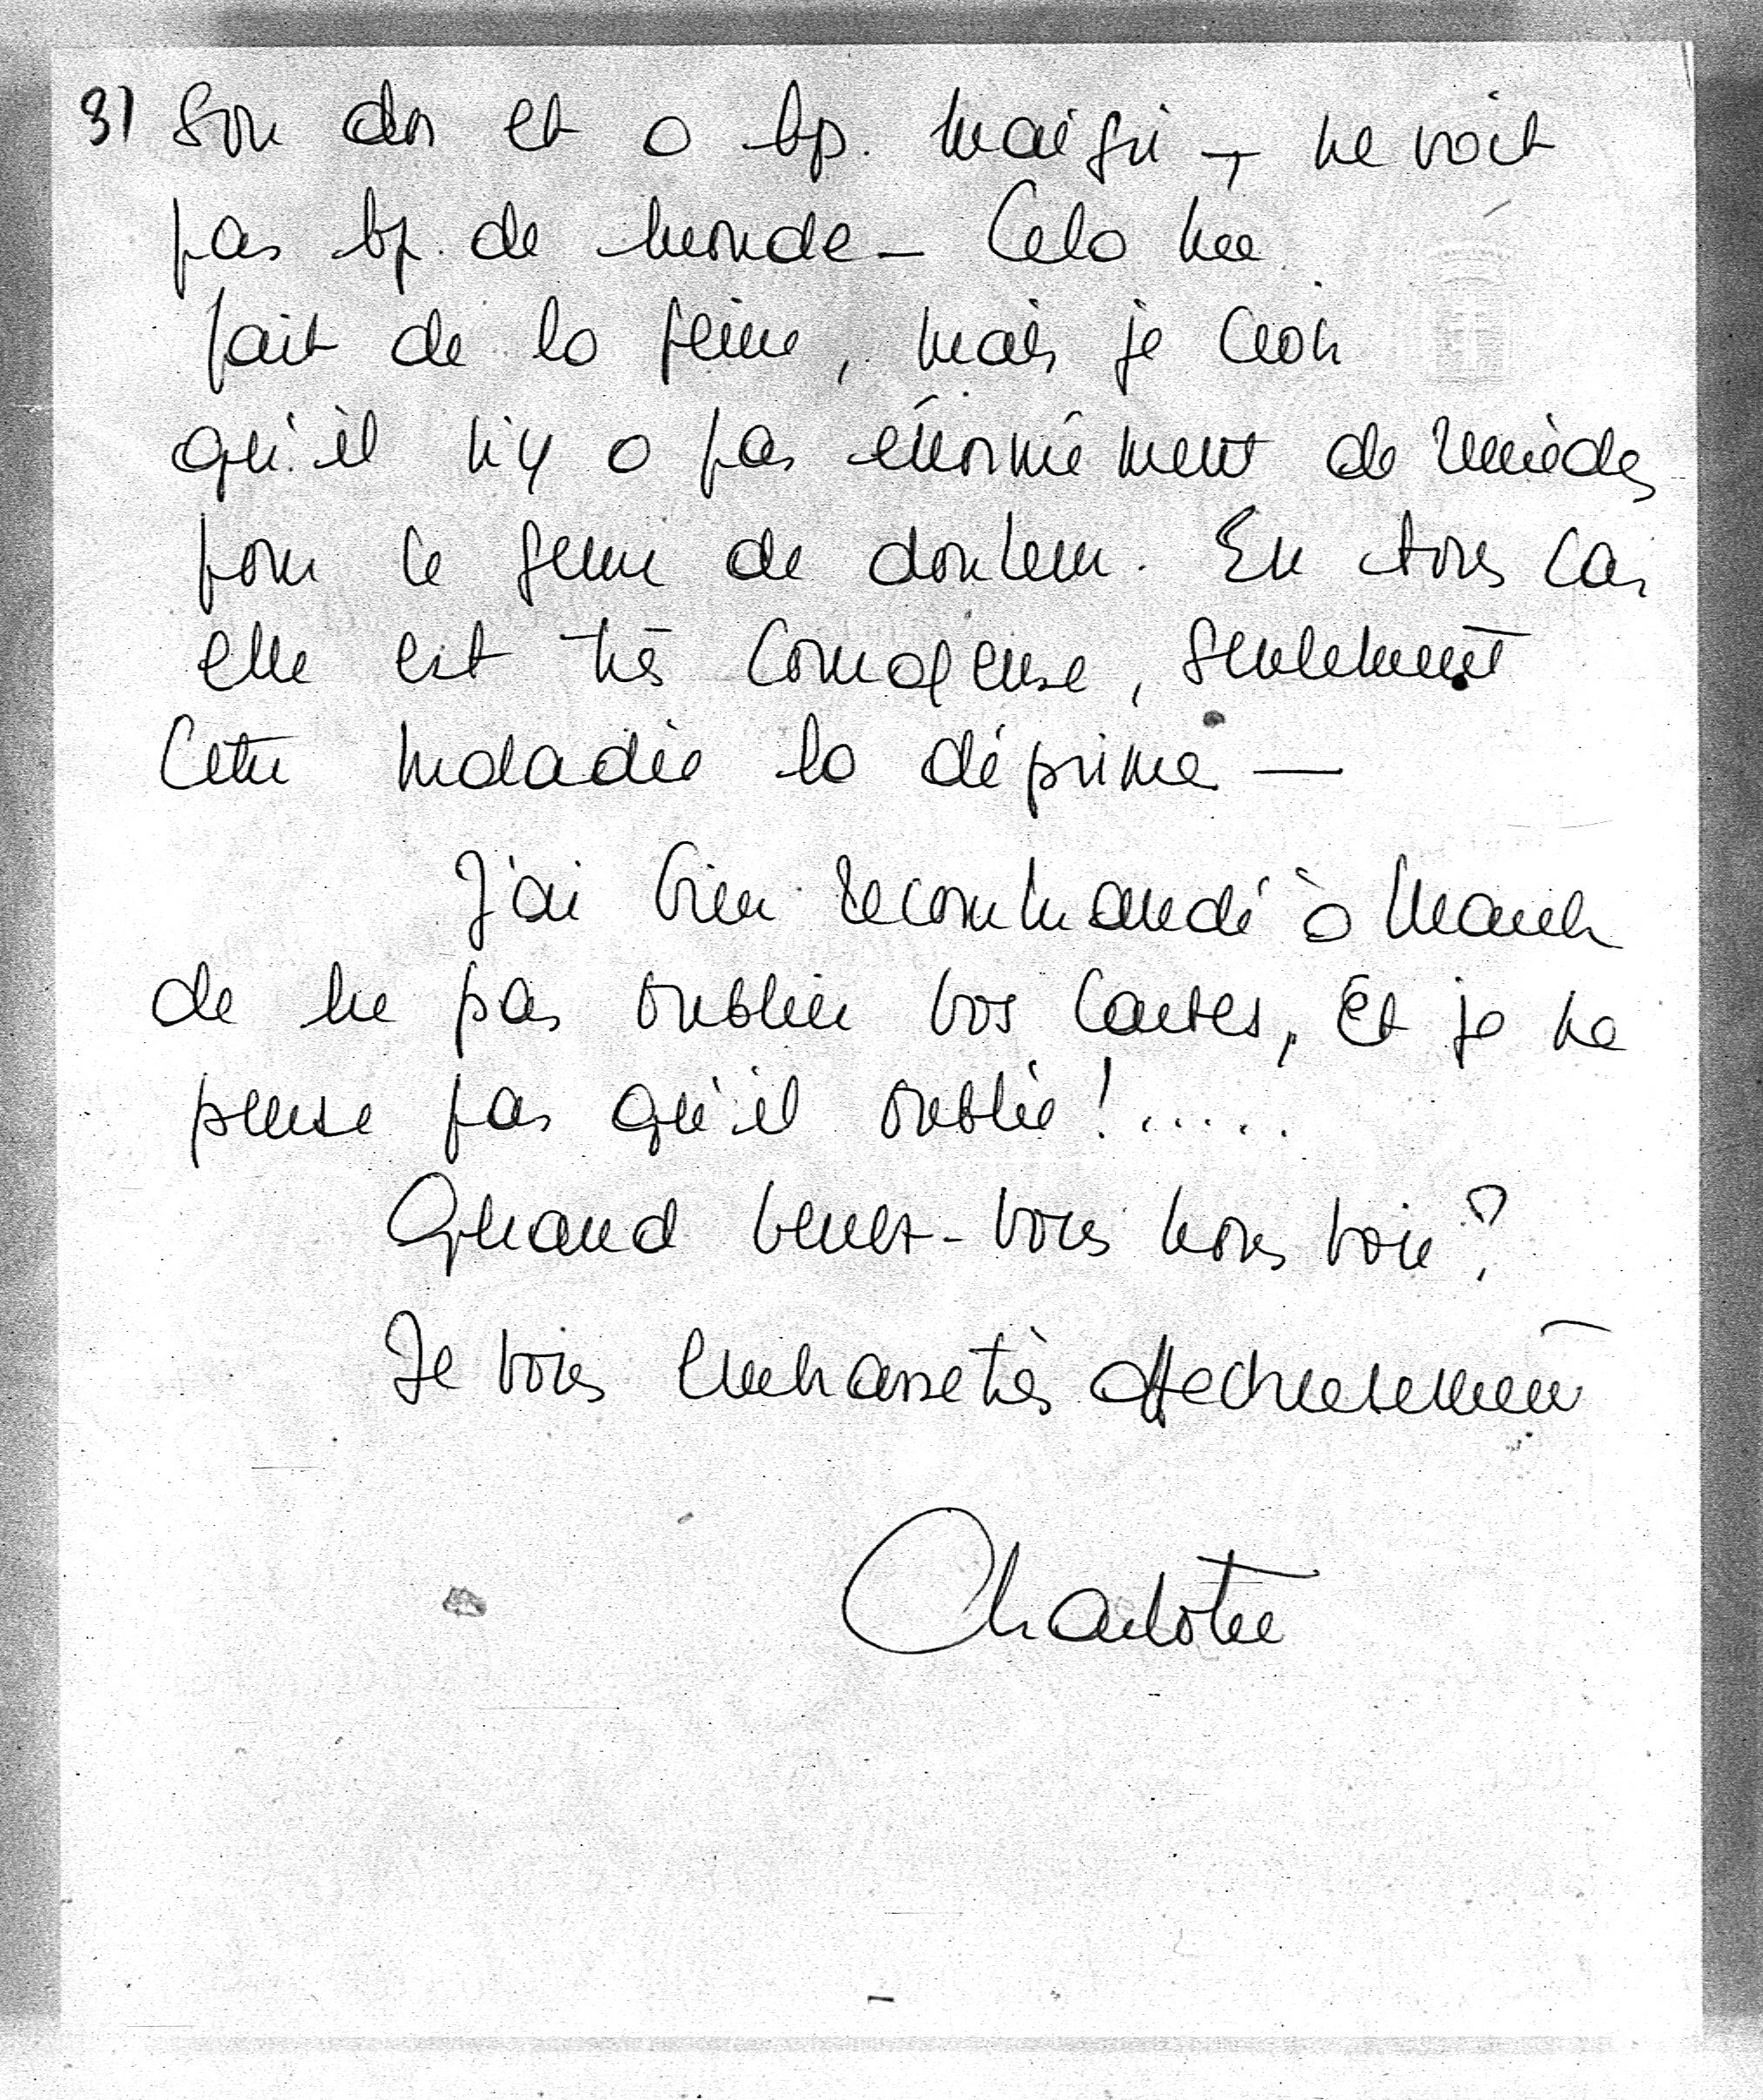 3) Son dos et a bp. maigri -, ne voit
pas bp. de monde - Cela me
fait de la peine, mais je crois
qu'il n'y a pas énormément de remèdes
pour ce genre de douleur. En tous cas
elle est très courageuse, seulement
Cette maladie la déprime —
J'ai bien recommandé à
de ne pas oublier vos cartes, Et je ne
pense pas qu'il oublie !.....
Quand venez-vous nous voir ?
Je vous embrasse très affectueusement
Charlotte